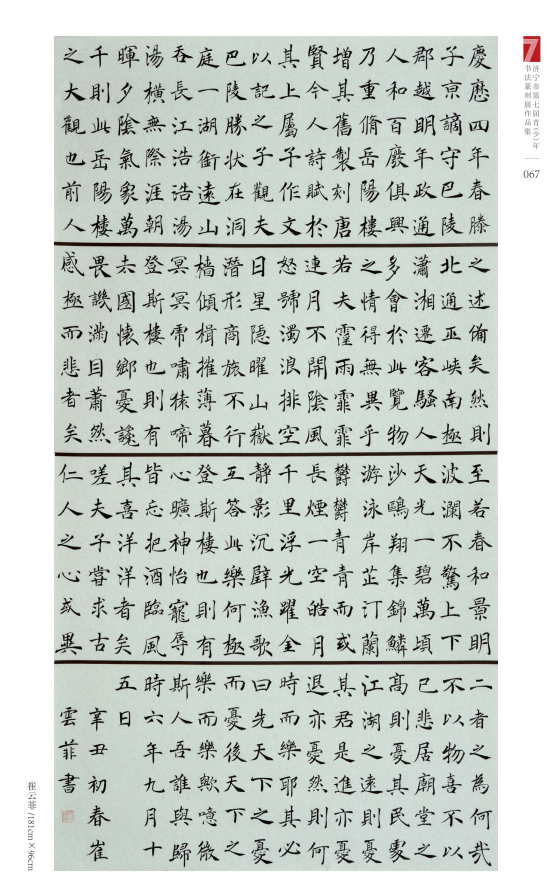 慶曆四年春滕
子亰謫守巴陵
郡越明年政通
人和百廢俱興
乃重脩岳陽樓
增其舊製刻唐
賢今人詩賦於
其上屬子作文
以記之子觀夫
巴陵勝状在洞
庭一湖銜遠山
吞長江浩浩湯
湯橫無際涯朝
暉夕陰氣象萬
千則此岳陽樓
之大觀也前人
之述備矣然則
北通巫峽南極
瀟湘遷客騷人
多會於此覽物
之情得無異乎
若夫霪雨霏霏
連月不開陰風
怒號濁浪排空
日星隱曜山嶽
潛形商旅不行
檣傾楫摧薄暮
冥冥虎嘯猿啼
登斯樓也則有
去國懷鄉憂讒
畏譏滿目蕭然
感極而悲者矣
至若春和景明
波瀾不驚上下
天光一碧萬頃
沙鷗翔集錦鱗
游泳岸芷汀蘭
鬱鬱青青而或
長煙一空皓月
千里浮光躍金
靜影沉璧漁歌
互答此樂何極
登斯樓也則有
心曠神怡寵辱
皆忘把酒臨風
其喜洋洋者矣
嗟夫子嘗求古
仁人之心或異
二者之為何哉
不以物喜不以
己悲居廟堂之
高則憂其民處
江湖之遠則憂
其君是進亦憂
退亦憂然則何
時而樂耶其必
曰先天下之憂
而憂後天下之
樂而樂歟噫微
斯人吾誰與歸
時六年九月十
五日
辛丑初春崔
雲菲書
7
济宁市第七届青(少)年
书法篆刻展作品集
067
崔云菲/181cm×96cm